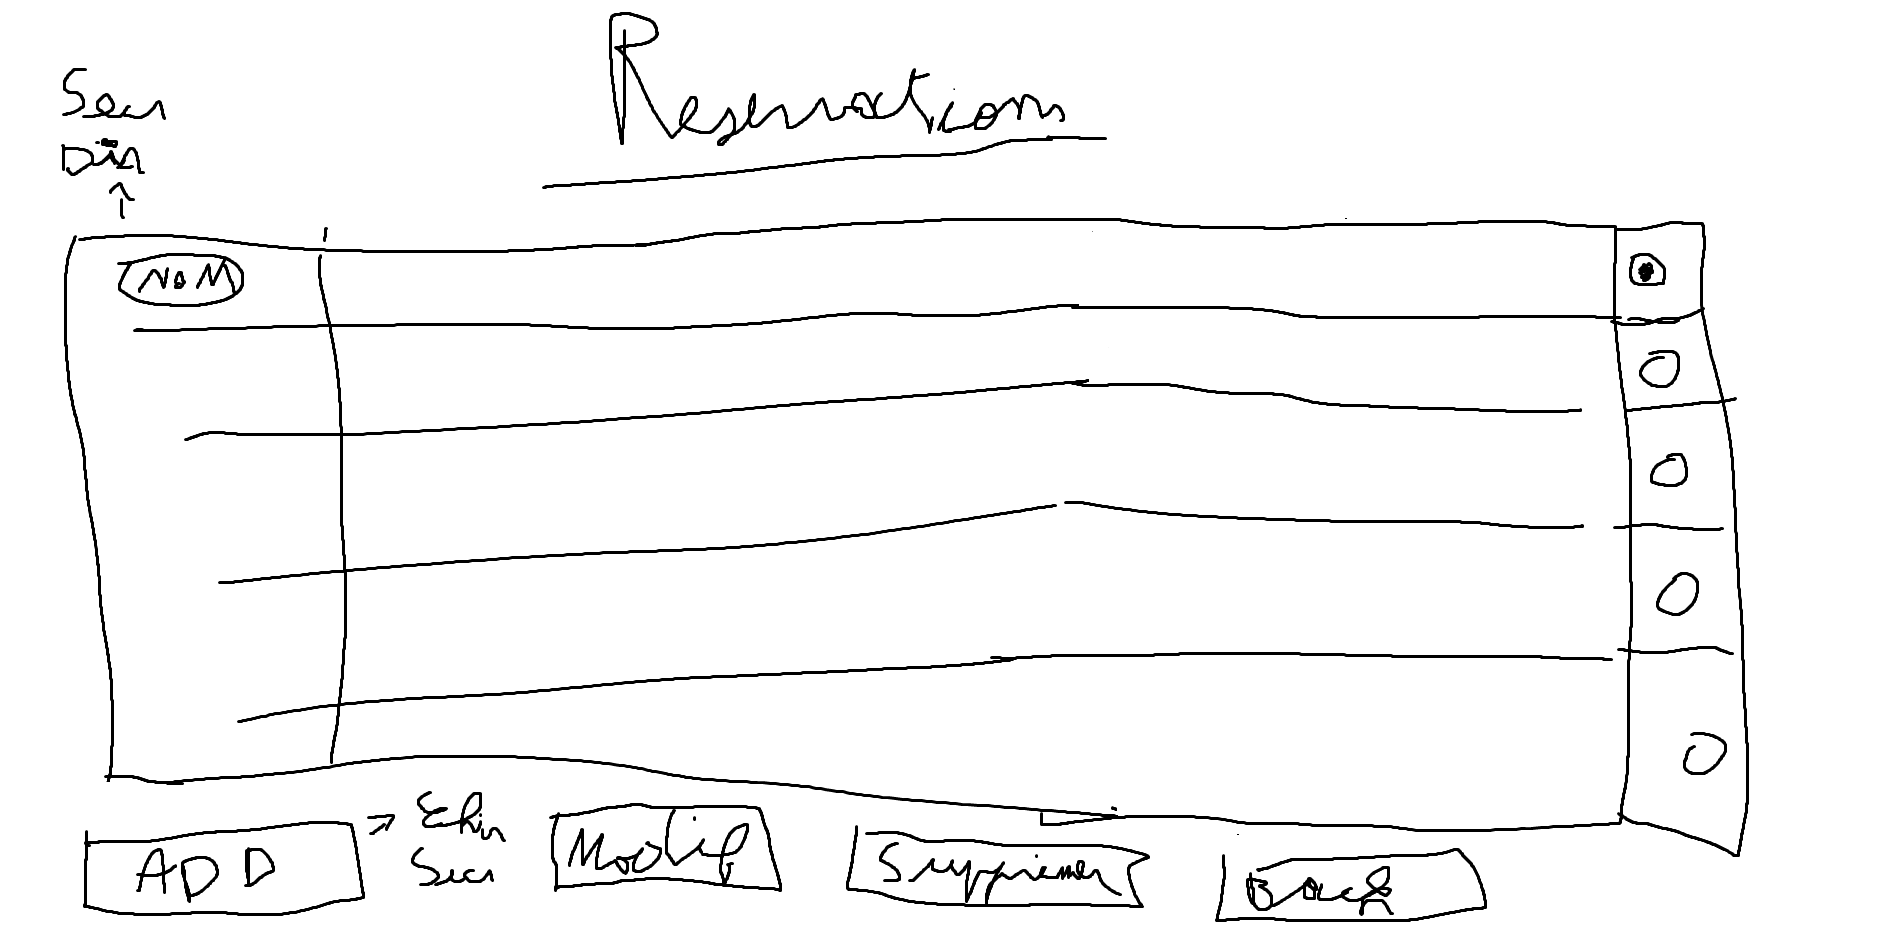 Reservations
Secr
Dir
NOM
ADD
Secr
Modif
Supprimer
Back